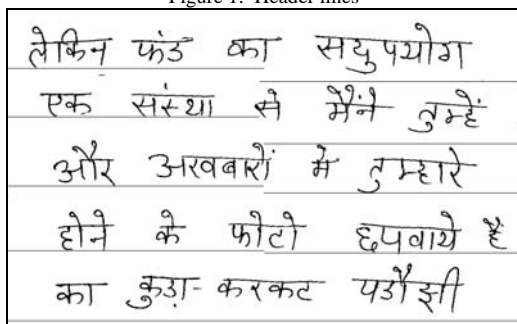 Figure 1: Header lines
लेकिन फंड का सयुपयोग
एक संस्था से मैंने तुम्हें
और अखबारों मे तुम्हारे
होने के फोटो छपवाये हैं
का कुडा़-करकट पडौझी